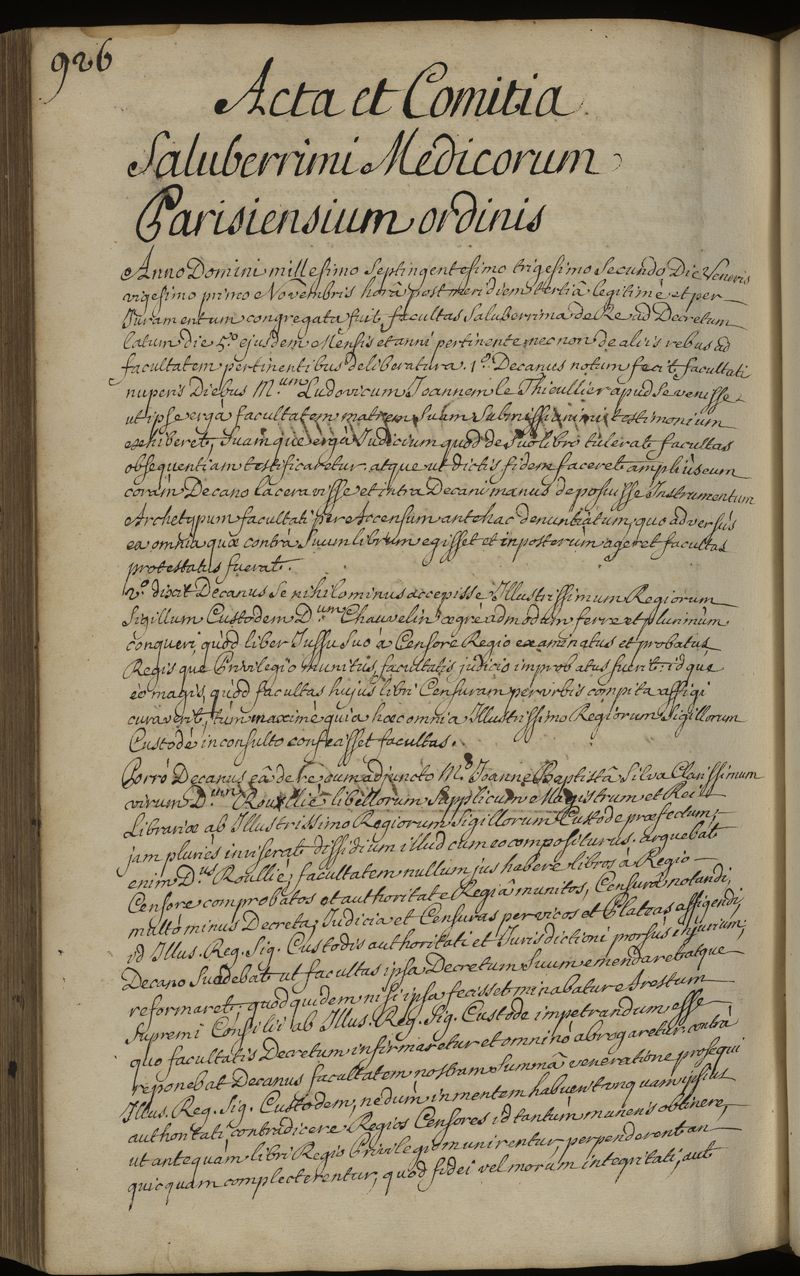 926
Acta et Comitia
Saluberrimi Medicorum
Parisiensium ordinis
Anno Domini millesimo Septingentesimo trigesimo Secundo Die Veneris
vigesimo primo e Novembris horâ post meridiem tertiâ legitimè et per
Juramentum congregata fuit, facultas Saluberrima de Re ad Decretum
latum die 5.º ejusdem Mensis et anni pertinente, nec non de aliis rebus ad
facultatem pertinentibus deliberatura. 1.º Decanus notum fecit facultati
nuperis Diebus M.um Ludovicum Joannem le Thioullier apud Se venisse
ut ipse ergà facultatem matrem Suam Submissi animi testimonium
exhiberet, Suamque ergà Judicium quod de Suo libro tulerat facultas
obsequentiam testificaretur. atque ut dictis fidem faceret ampliùs eum
coràm Decano laceravisse et intra Decani manus deposuisse Instrumentum
Archetypum facultati per Accensum antehac denuntiatum, quo adversùs
ea omnia quæ contrà Suum librum egisset et inposterum ageret facultas
protestatus fuerat.
2.º dixit Decanus Se nihilominus accepisse Illustrissimum Regiorum
Sigillum Custodem D.um Chauvelin ægrè admodum ferre et plurimùm
conqueri, quòd liber Jussu Suo à Censore Regio examinatus et probatus
Regisque Privilegio munitus, facultatis judicio improbatus fuerit: idque
eò magis, quòd facultas hujus libri Censuram per urbis compita affigi
curaverit, tùm maximè quia hæc omnia Illustrissimo Regiorum Sigillorum
Custode inconsulto confecisset facultas.
Porrò Decanus eâ de re, cum adjuncto M.º Joanne Baptistâ Silva Clarissimum
virum D.um Rouillié libellorum Supplicum Magistrum et Rei
Librariæ ab Illustrissimo Regiorum Sigillorum Custode præfectum,
jam pluriès inviserat dissidium illud cum eo compositurus. arguebat
enim D.us Roullié, facultatem nullum jus habere libros à Regio
Censore comprobatos et authoritate Regiâ munitos, Censurâ notandi,
multò minùs Decreta, Judicia et Censuras per vicos et Plateas affigendi,
id Illus. Reg. Sig. Custodis authoritati et Jurisdictioni prorsùs injurium;
Decano Suadebat ut facultas ipsa Decretum Suum emendaret atque
reformaret; quod quidem nisi ipsa fecisset minabatur Arestum
Supremi Consilii ab Illus. Reg. Sig. Custode impetrandum esse
quo facultatis Decretum infirmaretur et omninò abrogaretur. contrà
reponebat Decanus facultatem nostram Summâ veneratione prosequi
Illus. Reg. Sig. Custodem, nedum in mentem habuerit unquam ipsius
authoritati contradicere Regios Censores id tantùm muneris obtinere,
ut antequàm libri Regio Privilegio munirentur, perpenderent an
quicquam complecterentur, quod fidei vel morum integritati, aut